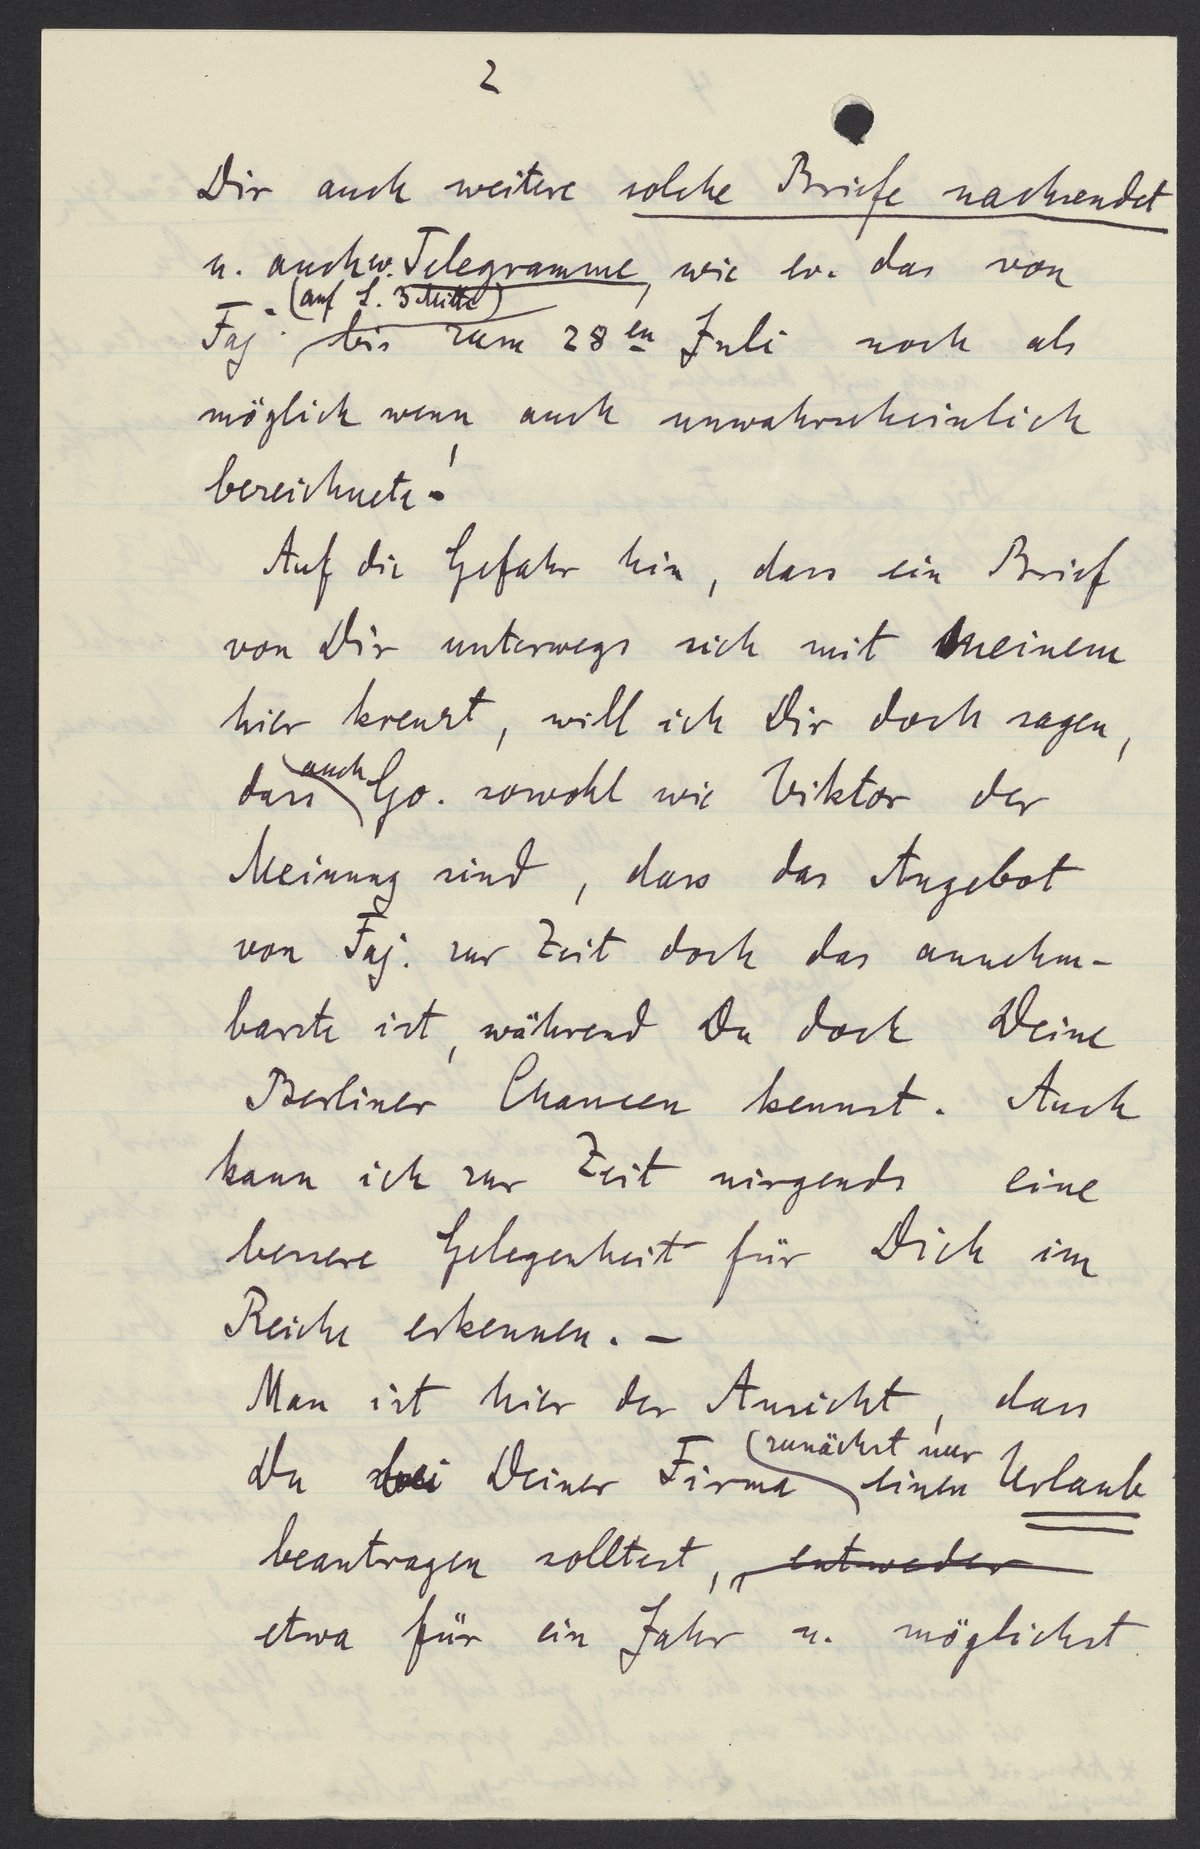 2
Dir auch weitere solche Briefe nachsendet
u. auch w. Telegramme, wie ev. das von
(auf S. 3 Mitte)
Faj. bis zum 28en Juli noch als
möglich wenn auch unwahrscheinlich
bezeichnete!
Auf die Gefahr hin, dass ein Brief
von Dir unterwegs sich mit meinem
hier kreuzt, will ich Dir doch sagen,
dass auch Go. sowohl wie Viktor der
Meinung sind, dass das Angebot
von Faj. zur Zeit doch das annehm-
barste ist, während Du doch Deine
Berliner Chancen kennst. Auch
kann ich zur Zeit nirgends eine
bessere Gelegenheit für Dich im
Reiche erkennen. —
Man ist hier der Ansicht, dass
Du bei Deiner Firma zunächst nur einen Urlaub
beantragen solltest, entweder
etwa für ein Jahr u. möglichst